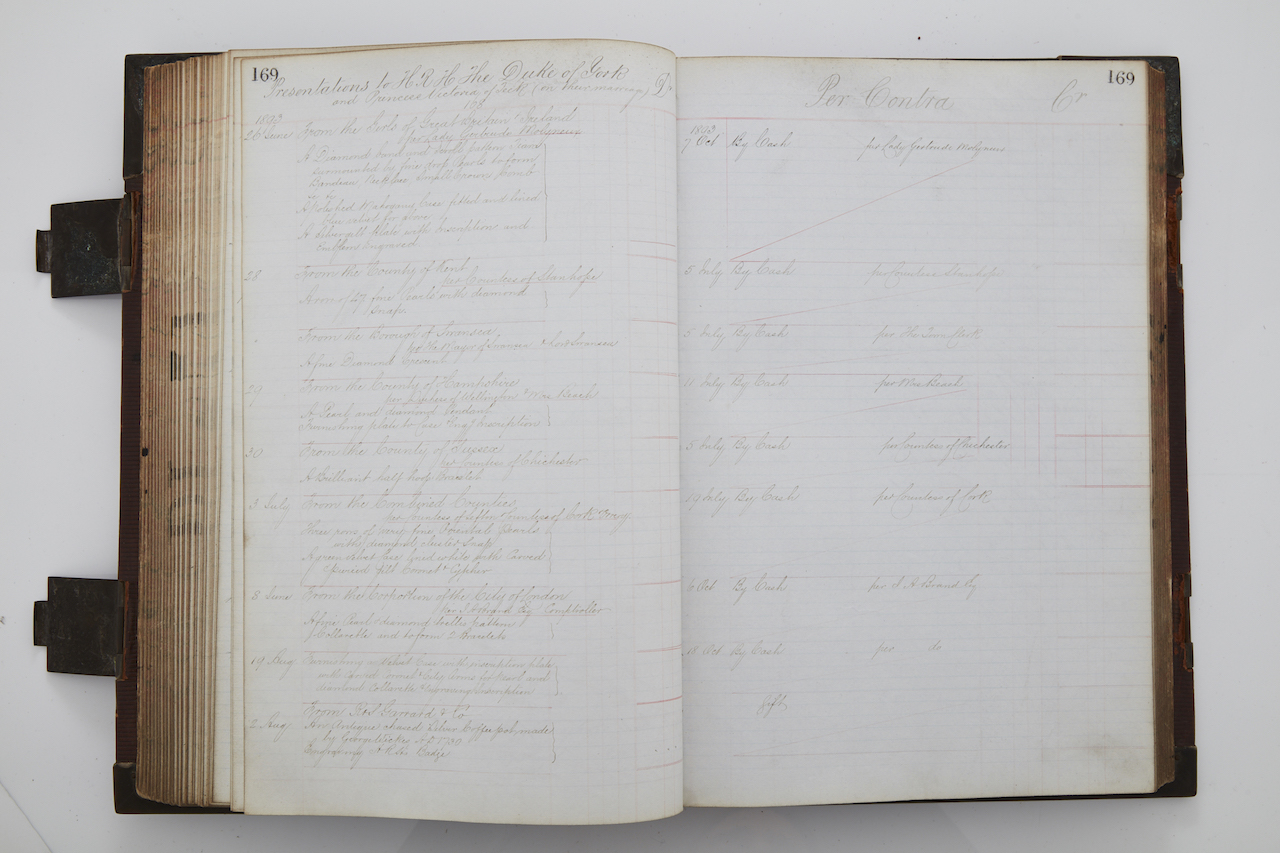 169
Presentations to H.R.H The Duke of York Dr
and Princess Victoria of Teck (on their marriage)
1893
26 June From the Girls of Great Britain & Ireland
per Lady Gertrude Molyneux
A Diamond band and scroll pattern Tiara
surmounted by fine drop Pearls to form
Bandeau Necklace, Small Crown, Comb
&c &c
A Polished Mahogany Case fitted and lined
blue velvet for above
A silver gilt Plate with inscription and
engraved
28 From the County of Kent
per Countess of Stanhope
A row of 47 fine Pearls with diamond
Snap
" From the Borough of Swansea
per the Mayor of Swansea & Lord Swansea
A fine Diamond Crescent
29 From the County of Hampshire
per Duchess of Wellington & Mrs Beach
A Pearl and diamond Pendant
Furnishing plate to Case Eng inscription
30 From the County of Sussex
per Countess of Chichester
A Brilliant half hoop Bracelet
3 July From the Combined Counties
per Countess of Sefton Countess of Cork
Three rows of very fine Oriental Pearls
with diamond cluster Snap
A green velvet Case lined white with Carved
gilt Coronet & Cypher
8 June From the Corporation of the City of London
per Esq Comptroller
A fine Pearl & diamond Trellis pattern
Collarette and to form 2 Bracelets
19 Aug Furnishing a velvet Case with inscription plate
with Coronet & City Arms for Pearl and
diamond Collarette & engraving Inscription
From Rob Garrard & Co
2 Aug An Antique chased Silver Coffee pot made
by George Wickes A D 1739
Engraving H.R.Hs Badge
169
Per Contra Cr
1893
7 Oct By Cash per Lady Gertrude Molyneux
5 July By Cash per Countess Stanhope
5 July By Cash per The Town Clerk
11 July By Cash per Mrs Beach
5 July By Cash per Countess of Chichester
19 July By Cash per Countess of Cork
6 Oct By Cash per J A Brand Esq
18 Oct By Cash per do
Gift